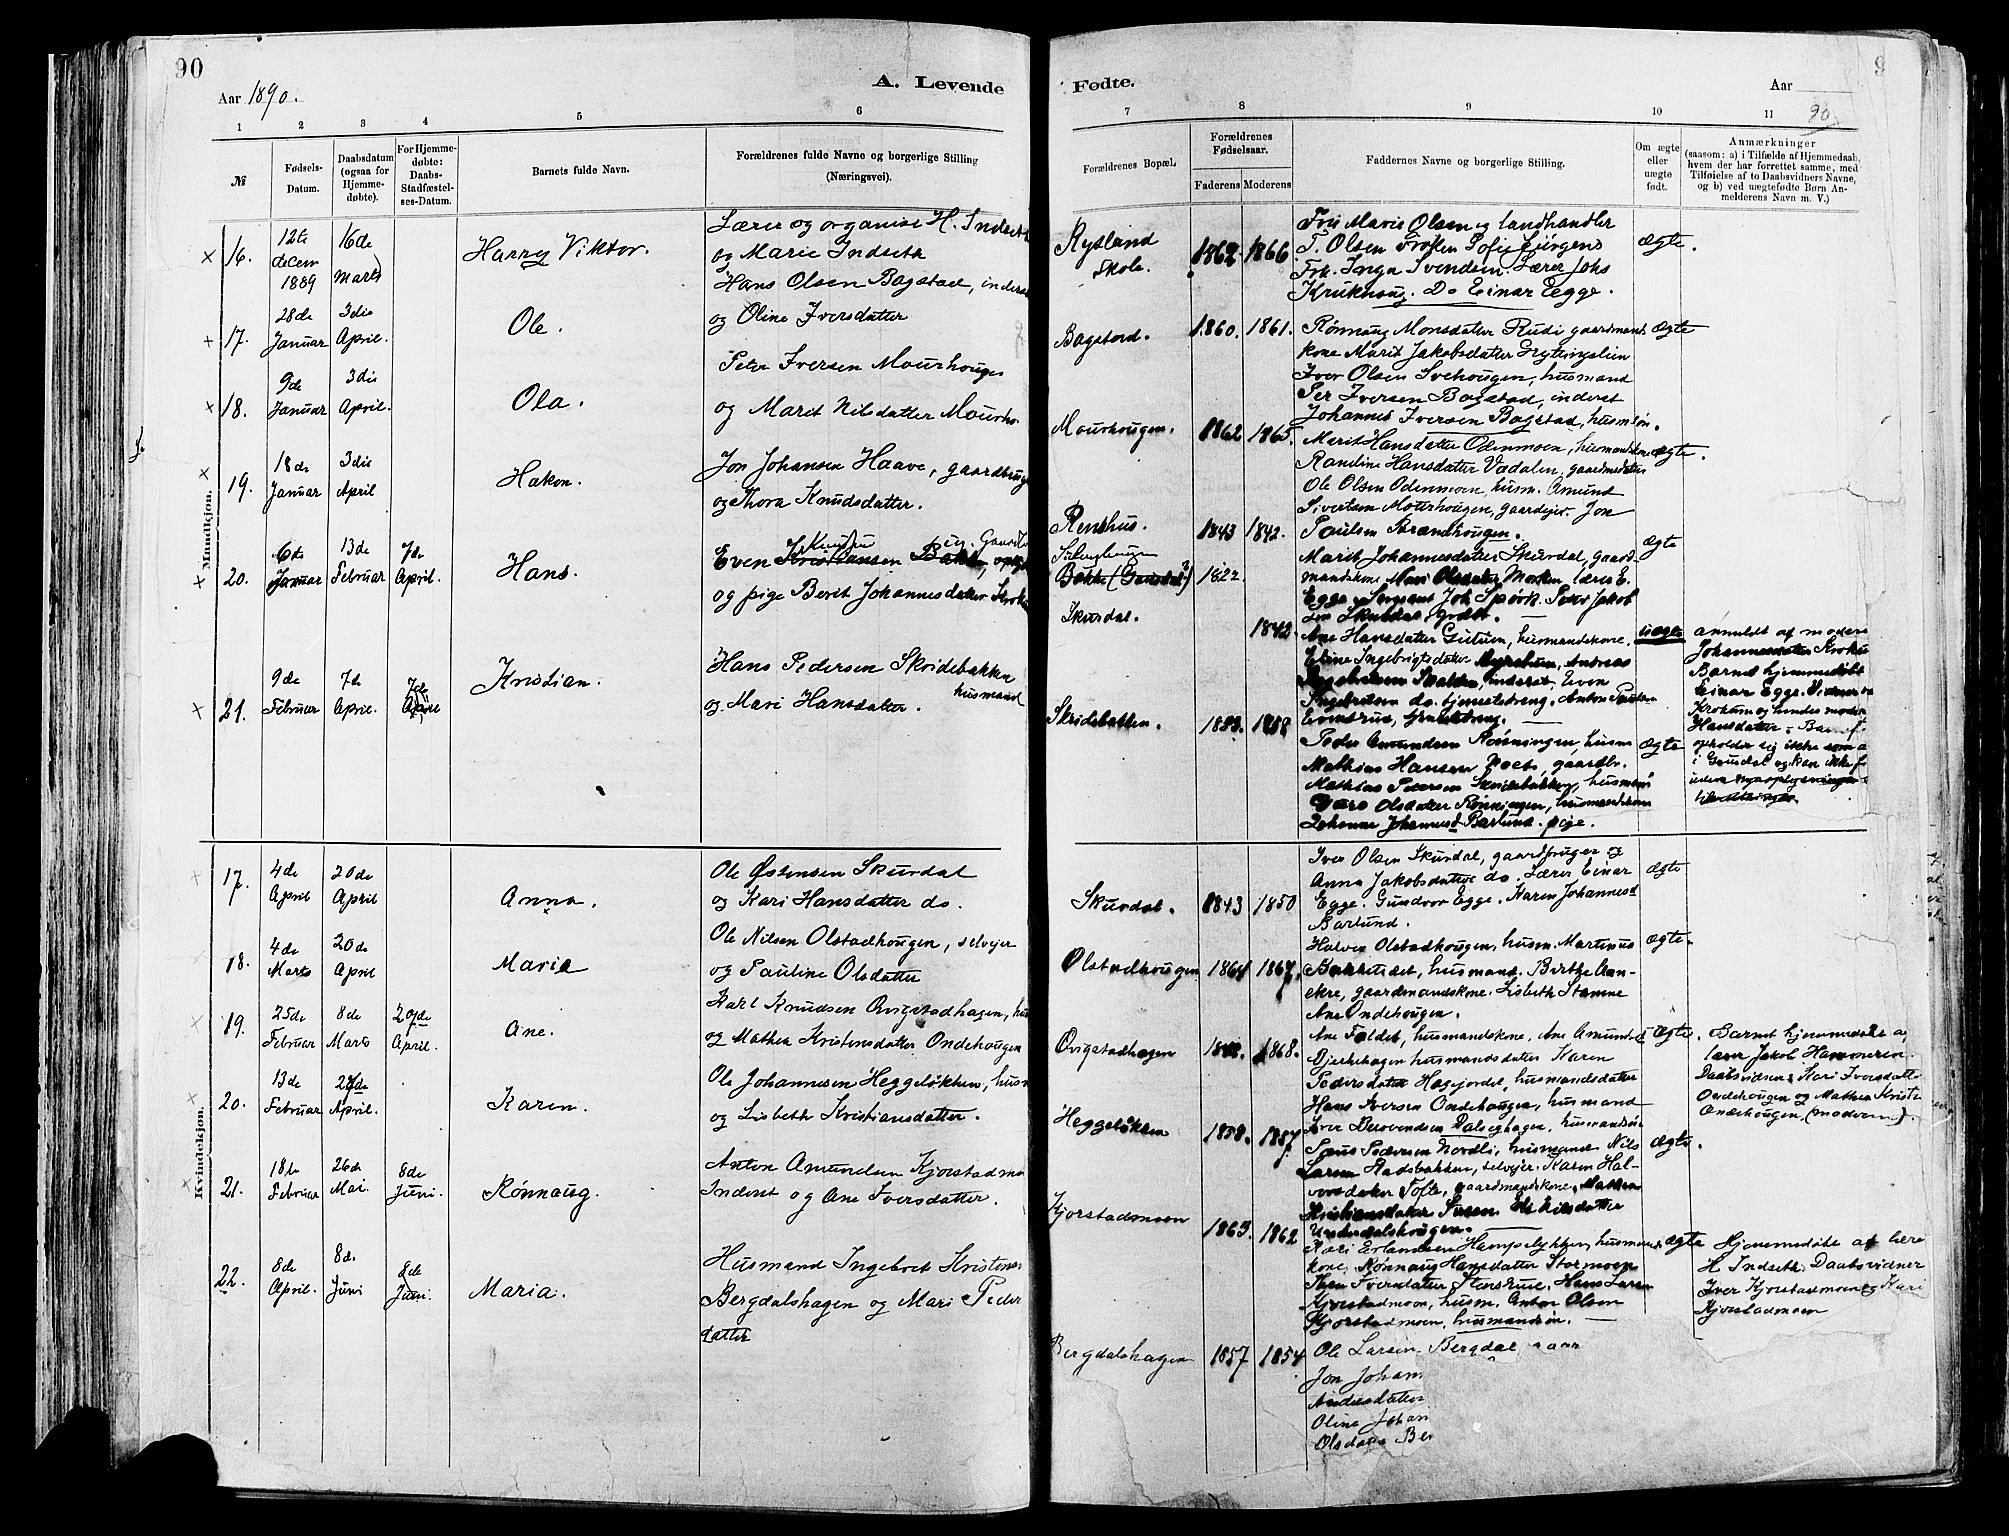 90
Aar 1890.
A. Levende
1 2 3 4 5 6
№
Fødsels-Datum.
Daabsdatum (ogsaa for Hjemmedøbte).
For Hjemmedøbte: Daabs-Stadfæstelses-Datum.
Barnets fulde Navn.
Forældrenes fulde Navne og borgerlige Stilling
(Næringsvei).
Mandkjøn.
16. 12te decem 1889 16de Marts Harry Viktor.
Lærer og organist H. Indseth
og Marie Indseth
17. 28de Januar 3die April. Ole.
Hans Olsen Bagstad, inderst
og Oline Iversdatter
18. 9de Januar 3die April. Ola.
Peter Iversen Mourhougen
og Marit Nilsdatter Mourho
19. 18de Januar 3die April Hakon.
Jon Johansen Haave, gaardbrug
og Thora Knudsdatter.
20. 6de Januar 13de Februar 7de April. Hans.
Even Kristiansen Bakke,
og pige Berit Johannesdatter Krok
21. 9de Februar 7de April. 7de April Kristian.
Hans Pedersen Skridebakken
husmand
og Mari Hansdatter.
Kvindekjøn.
17. 4de April 20de April Anna.
Ole Østensen Skurdal
og Kari Hansdatter do.
18. 4de Marts 20de April Maria
Ole Nilsen Olstadhougen, selveier
og Pauline Olsdatter
19. 25de Februar 8de Marts 20de April. Ane.
Karl Knudsen Ovigstadhagen, hus
og Mathea Kristensdatter Ondehougen
20. 13de Februar April. Karen.
Ole Johannesen Heggeløkken, husm
og Lisbeth Kristiansdatter.
21. 18de Februar 26de Mai. 8de Juni. Rønnaug.
Anton Amundsen Kjorstadmo
Inderst og Ane Iversdatter.
22. 8de April. 8de Juni 8de Juni. Maria.
Husmand Ingebret Kristens
Bergdalshagen og Mari Peder
datter
Fødte.
9
Aar
90
7 8 9 10 11
Forældrenes Bopæl.
Forældrenes Fødselsaar.
Faderens Moderens
Faddernes Navne og borgerlige Stilling.
Om ægte eller uægte født.
Anmærkninger
(saasom: a) i Tilfælde af Hjemmedaab,
hvem der har forrettet samme, med
Tilføielse af to Daabsvidners Navne,
og b) ved uægtefødte Børn Anmelderens Navn m. V.)
Rysland Skole. 1862 1866 ægte.
Fru Marie Olsen og Landhandler
T. Olsen Frøken Sofie Jürgens
Frk. Inga Svendsen. Lærer Johs
Krukhoug. Do Einar Egge.
Bagstad. 1860. 1861. ægte
Rønnaug Monsdatter Rudi gaardmands
kone Marit Jakobsdatter Grytingslien
Iver Olsen Svehougen, husmand
Per Iversen Bagstad, inderst
Johannes Iversen Bagstad, husmsøn.
Mourhougen. 1862 1865. ægte.
Marit Hansdatter Odenmoen, husmandskone
Randine Hansdatter Vadalen, gaardmdatter
Ole Olsen Odenmoen, husm. Amund
Sivertsen Mourhougen, gaardejer. Jon
Paulsen Brandhougen.
Renshus. 1843 1842. ægte
Marit Johannesdatter Skurdal, gaardmandskone
Mari Olsdatter Morken, lærer E.
Egge. Sergeant Joh Spørk. Peder Jakob
Bakke (Gausdal?) 1822.
Skurdal.
1842. uægte
Ane Hansdatter Gutum, husmandskone.
Eline Ingebrigtsdatter Myrebum, Andreas
inderst, Even
Ingebritsen do. tjenestedreng. Anton Paulsen
anmeldt af modere
Johannesdatter Krokum
Barnet hjemmedøbt
Einar Egge. Vidner
Krokum og hendes moder
Hansdatter. Barnef
opholder sig ikke som a
i Gausdal og kan ikke f
Skridebakken. 1883. 1858 ægte
Peder Amundsen Rønningen, husm
Mathias Hansen gaardbr.
Mathias Pedersen Skridebakken, husmand
Olsdatter Rønningen, husmandskone
Johanne Johannesd Barlund. pige.
Skurdal. 1843 1850 ægte
Iver Olsen Skurdal, gaardbruger og
Anna Jakobsdatter do. Lærer Einar
Egge. Gundvor Egge. Karen Johannesd
Barlund.
Olstadhougen 1864 1867. ægte.
Halvor Olstadhougen, husm. Martinus
Bakkerudet, husmand. Birthe Aanekre,
gaardmandskone. Lisbeth Stamne
Ane Ondehougen.
Ovigstadhagen 1868. ægte.
Ane Foldet, husmandskone, Ane Amundsd
Gjerkehagen husmandsdatter Karen
Pedersdatter Hagejordet, husmandsdatter
Hans Iversen Ondehougen, husmand
Barnet hjemmedøbt a
lærer Jakob Hammeren
Daabsvidner: Kari Iversdatte
Ondehougen og Mathea Kriste
Ondehougen, (moderen).
Heggeløkken 1858. 1857 ægte.
Pedersen Nordli, husmand. Nils
Larsen Stadsbakken, selvejer. Karen Halvorsdatter
Tofte, gaardmandskone. Mathea
Kristiansdatter
Kjorstadmoen 1863 1862 ægte
Kari Erlandsen Hampeløkken, husmands
kone, Rønnaug Hansdatter Stormoen
Thea Iversdatter Stenshus, Hans Larsen
Kjorstadmoen, husm. Anton Olsen
Kjorstadmoen, husmandsøn.
Hjemmedøbt af lære
H Indseth. Daabsvidner
Iver Kjorstadmoen og Kari
Kjorstadmoen
Bergdalshagen 1857 1854
Ole Larsen Bergdal gaar
Jon Joham
Andersdatter
Oline Johan
Olsdatter Ber